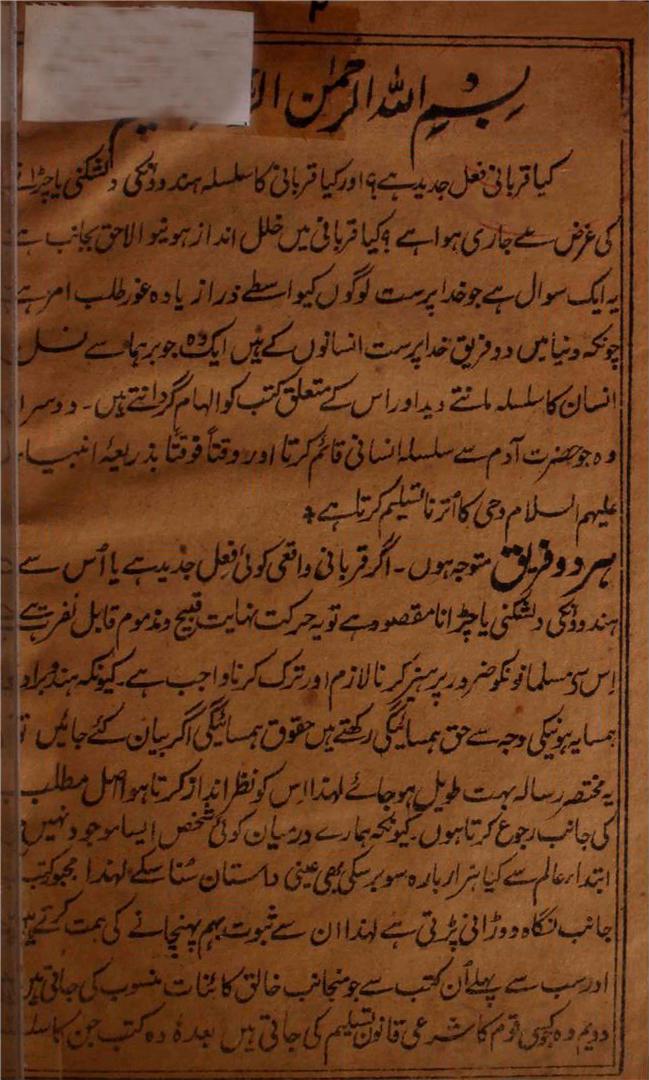 ۲
بسم اللہ الرحمٰن
کیا قربانی فعل جدید ہے؟ اور کیا قربانی کا سلسلہ ہندوونکی دلشکنی یا چڑانے
کی غرض سے جاری ہوا ہے؟ کیا قربانی میں خلل انداز ہونیوالا حق بجانب ہے
یہ ایک سوال ہے جو خدا پرست لوگوں کیواسطے ذرا زیادہ غور طلب امر ہے
چونکہ دنیا میں دو فریق خدا پرست انسانوں کے ہیں ایک وہ جو برہما سے نسل
انسان کا سلسلہ مانتے دید اور اس کے متعلق کتب کو الہام گردانتے ہیں۔ دوسرا
وہ جو حضرت آدم سے سلسلہ انسانی قائم کرتا اور وقتاً فوقتاً بذریعۂ انبیاء
علیہم السلام وحی کا اُترنا تسلیم کرتا ہے
ہر دو فریق متوجہ ہوں۔ اگر قربانی واقعی کوئی فعل جدید ہے یا اُس سے
ہندوونکی دلشکنی یا چڑانا مقصود ہے تو یہ حرکت نہایت قبیح و مذموم قابل نفرت ہے
اِس سے مسلمانونکو ضرور پرہیز کرنا لازم اور ترک کرنا واجب ہے۔ کیونکہ ہندو برادر
ہمسایہ ہونیکی وجہ سے حق ہمسائیگی رکھتے ہیں حقوق ہمسائیگی اگر بیان کئے جائیں تو
یہ مختصر رسالہ بہت طویل ہو جائے لہذا اِس کو نظر انداز کرتا ہوا اصل مطلب
کی جانب رجوع کرتا ہوں۔ کیونکہ ہمارے درمیان کوئی شخص ایسا موجود نہیں
ابتداء عالم سے کیا ہزار بارہ سو برسکی بھی عینی داستان سُنا سکے لہذا مجبور کتب
جانب نگاہ دوڑانی پڑتی ہے لہذا ان سے ثبوت بہم پہنچانے کی ہمت کرتے ہیں
اور سب سے پہلے اُن کتب سے جو منجانب خالق کائنات منسوب کی جاتی ہیں
دویم وہ جو کسی قوم کا شرعی قانون تسلیم کی جاتی ہیں بعدہٗ وہ کتب جن کا سلسلہ